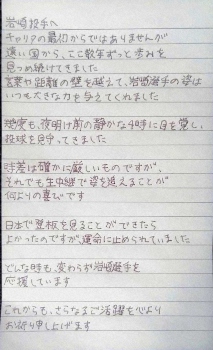 岩崎投手へ
キャリアの最初からではありませんが
遠い国から、ここ数年ずっと歩みを
見つめ続けてきました
言葉や距離の壁を越えて、岩崎選手の姿は
いつも大きな力を与えてくれました
何度も、夜明け前の静かな4時に目を覚し、
投球を見守ってきました
時差は確かに厳しいものですが、
それでも生中継で姿を追えることが
何よりの喜びです
日本で登板を見ることができたら
よかったのですが、運命に止められていました
どんな時も、変わらず岩崎選手を
応援しています
これからも、さらなるご活躍を心より
お祈り申し上げます